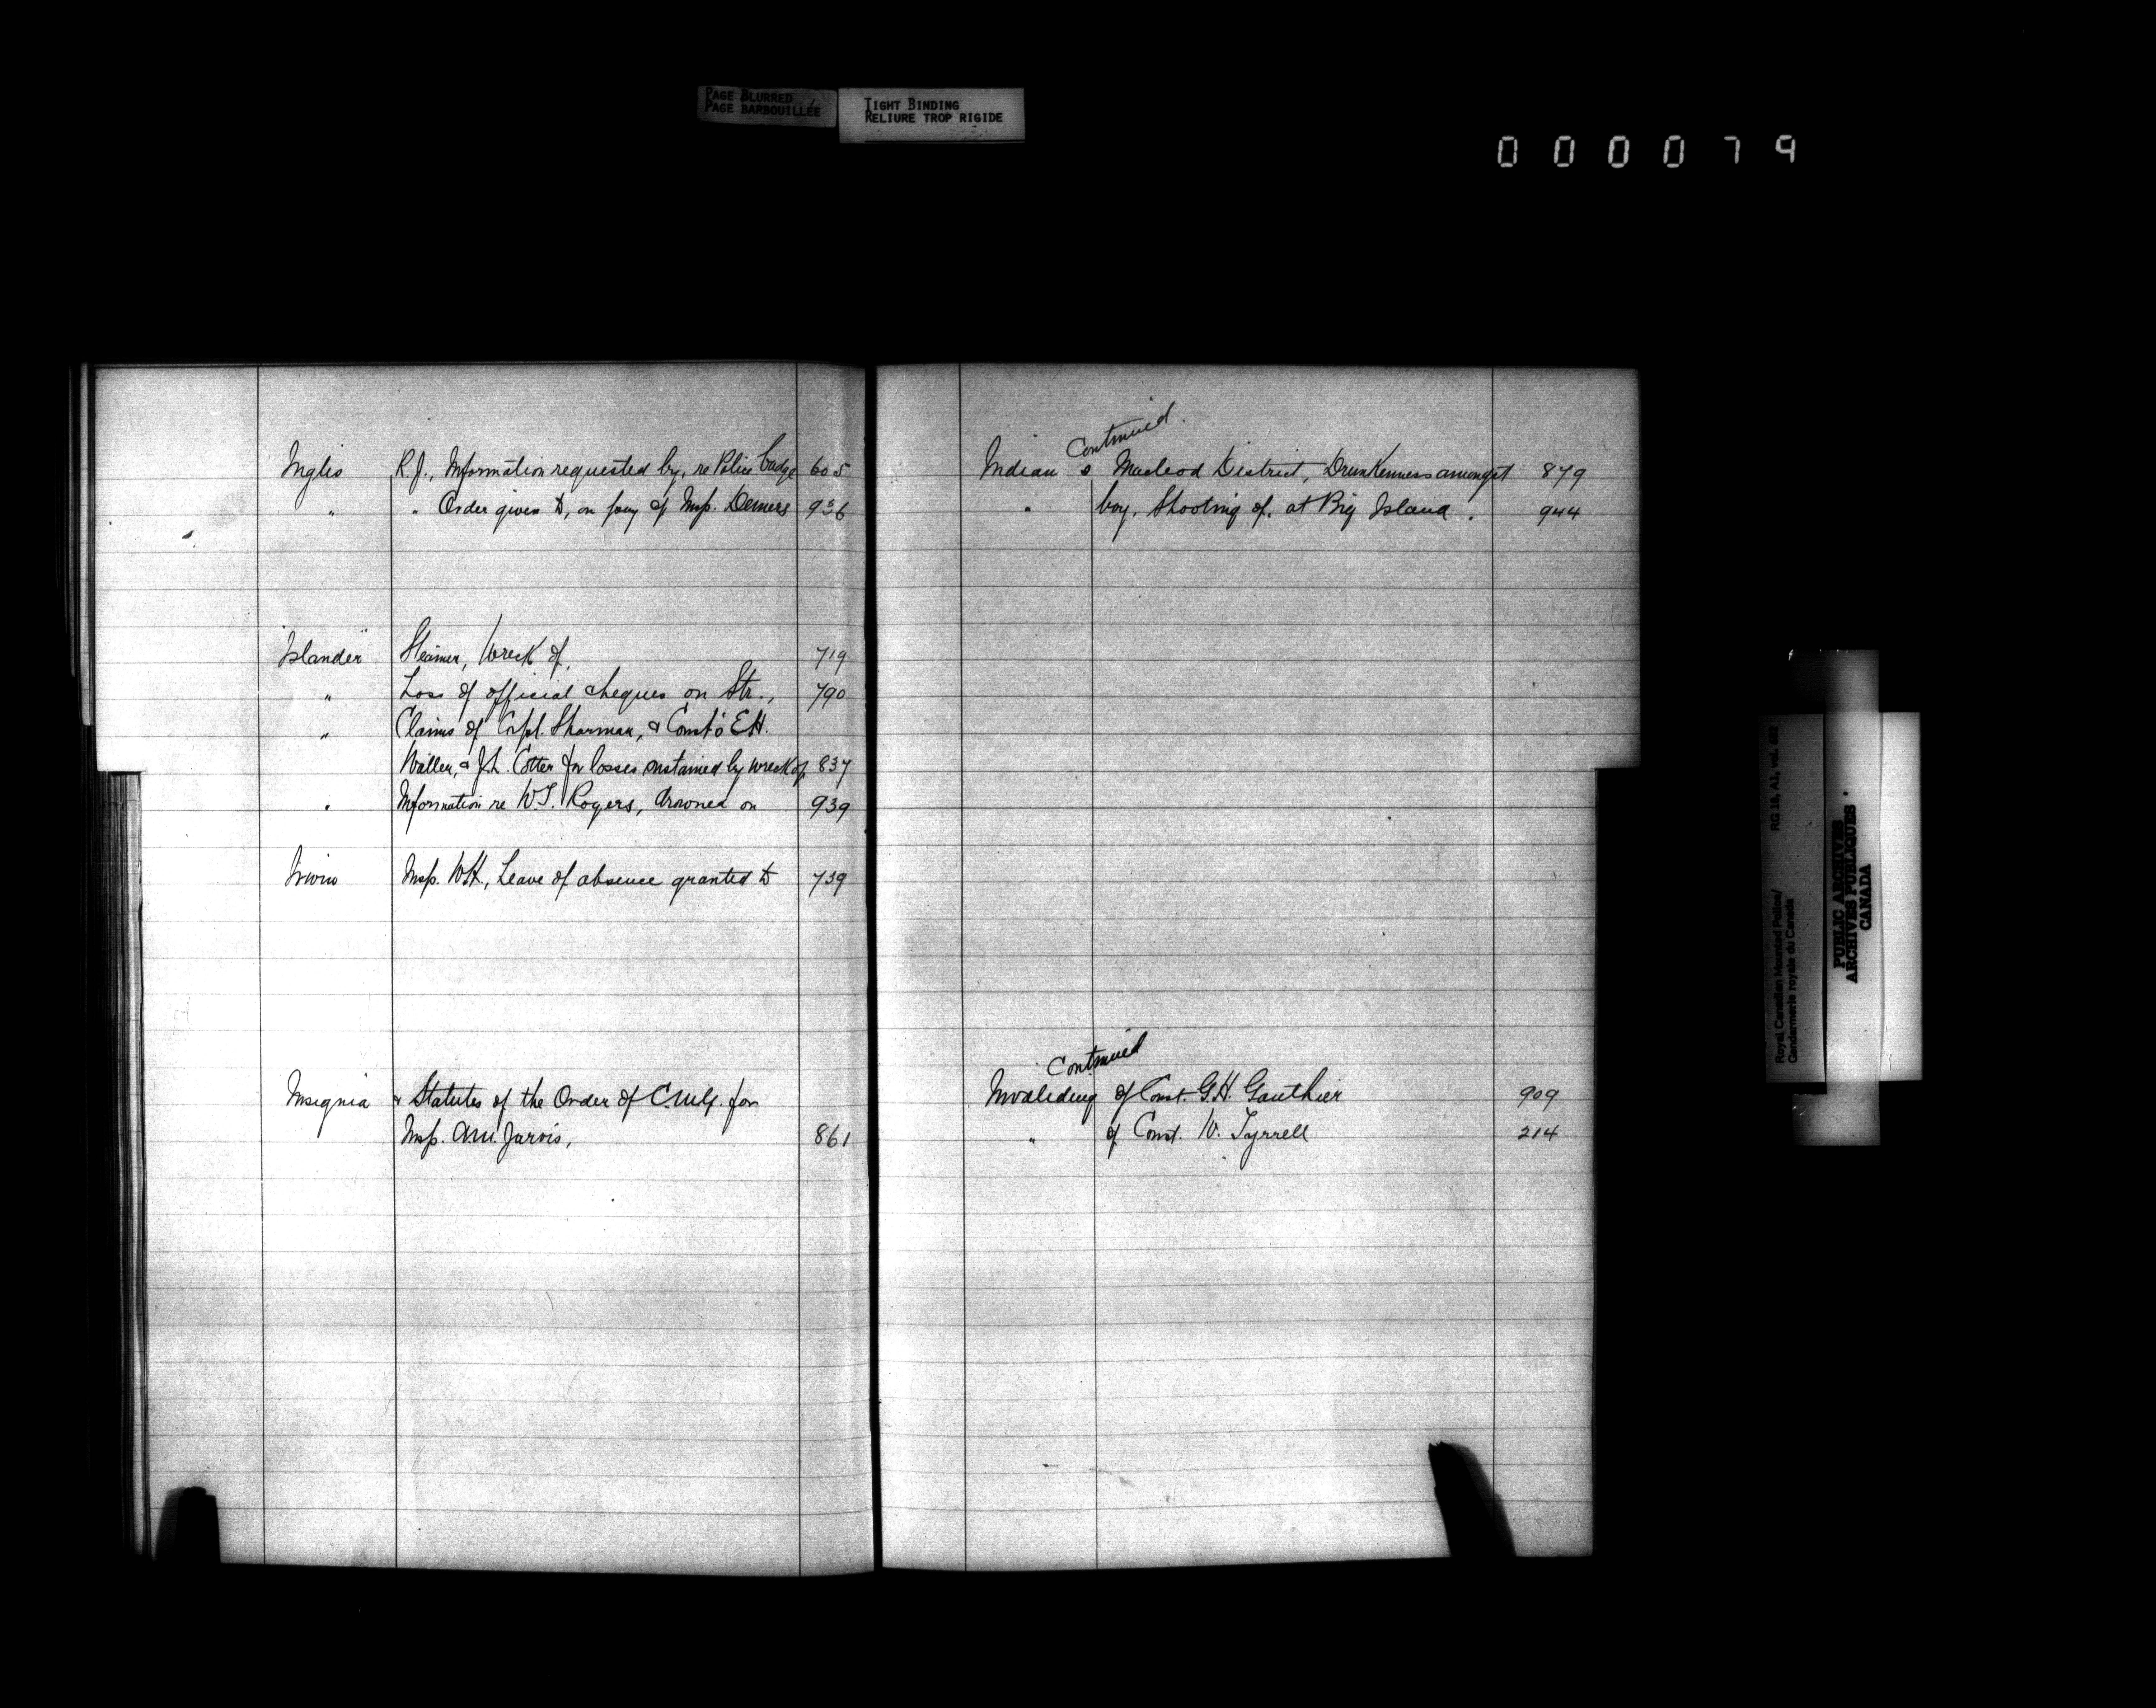 PAGE BLURRED
PAGE BARBOUILLÉE
TIGHT BINDING
RELIURE TROP RIGIDE
000079
Inglis R.J., Information requested by, re Police badge 605
" " Order given to, on pay of Insp. Demers 936
"Islander" Steamer, Wreck of, 719
" Loss of official cheques on Str., 790
" Claims of Corpl. Sharman, & Const's E.H.
Waller, & J.L. Cotter for losses sustained by wreck of, 837
" Information re W.T. Rogers, drowned on 939
Irwin Insp. W.H., Leave of absence granted to 739
Insignia & Statutes of the Order of C.M.G. for
Insp. A.M. Jarvis, 861
Continued.
Indian s Macleod District, Drunkenness amongst 879
" boy, Shooting of, at Big Island. 944
Continued
Invaliding of Const. G.H. Gauthier 909
" of Const. W. Tyrrell 214
Royal Canadian Mounted Police/ RG 18, A1, vol.
Gendarmerie royale du Canada
PUBLIC ARCHIVES
ARCHIVES PUBLIQUES
CANADA